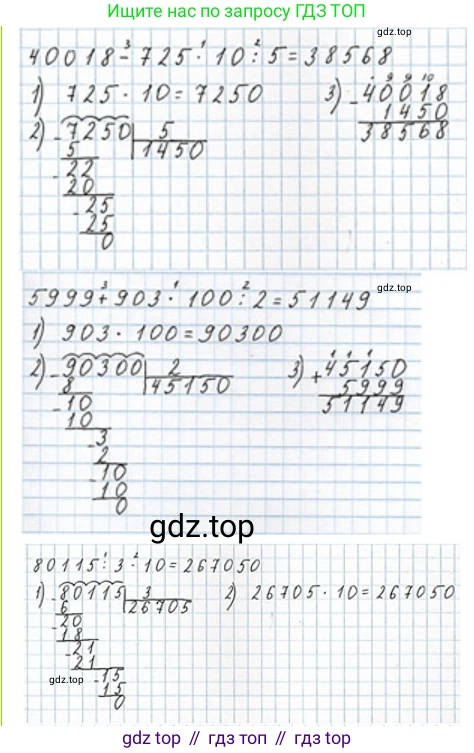 Ищите нас по запросу ГДЗ ТОП
40018 - 725 · 10 : 5 = 38568
3 1 2
gdz.top
1) 725 · 10 = 7250
2) - 7250 5
5 1450
- 22
20
- 25
25
0
3) - 40018
9 9 10
1450
38568
5999 + 903 · 100 : 2 = 51149
3 1 2
gdz.top
1) 903 · 100 = 90300
2) - 90300 2
8 45150
- 10
10
- 3
2
- 10
10
0
3) + 45150
1 1 1
5999
51149
gdz.top
80115 : 3 · 10 = 267050
1 2
1) - 80115 3
6 26705
- 20
18
- 21
21
- 15
15
0
gdz.top
2) 26705 · 10 = 267050
gdz.top // гдз топ // гдз.топ